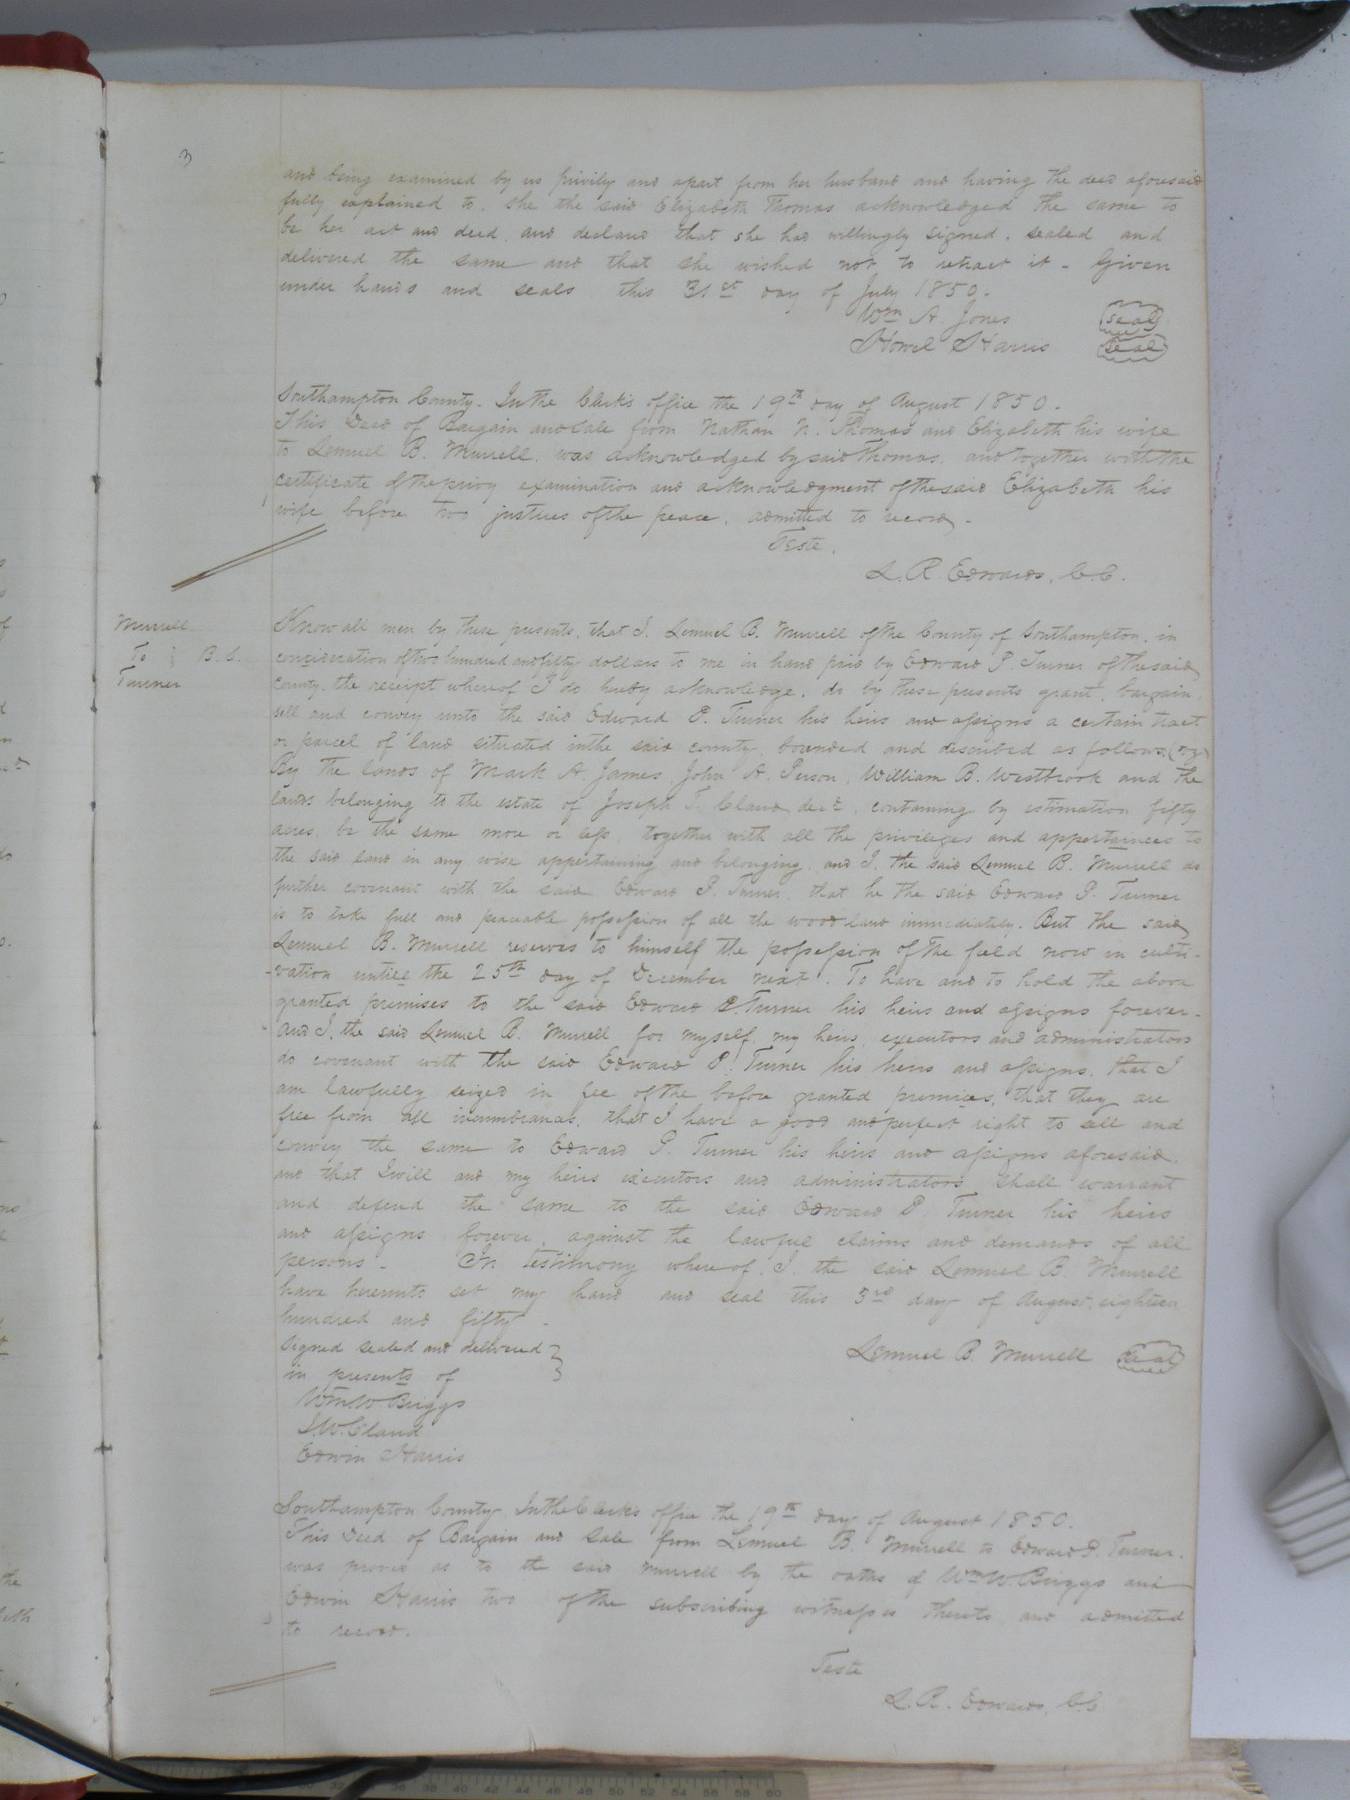 3
and being examined by us privily and apart from her husband and having the deed aforesaid
fully explained to, she the said Elizabeth Thomas acknowledged the same to
be her act and deed, and declared that she had willingly signed, sealed and
delivered the same and that she wished not to retract it - Given
under hands and seals this 31st day of July 1850.
Wm A. Jones seal
Howel Harris seal
Southampton County. In the Clerk's office the 19th day of August 1850.
This Deed of Bargain and sale from Nathan N. Thomas and Elizabeth his wife
to Lemuel B. Murrell, was acknowledged by said Thomas, and together with the
certificate of the privy examination and acknowledgment of the said Elizabeth his
wife before two justices of the peace, admitted to record -
Teste,
L. R. Edwards, C.C.
Murrell
To } B. S.
Turner
Know all men by these presents, that I, Lemuel B. Murrell of the County of Southampton, in
consideration of two hundred and fifty dollars to me in hand paid by Edward P. Turner of the said
County, the receipt whereof I do hereby acknowledge, do by these presents grant, bargain,
sell and convey unto the said Edward P. Turner his heirs and assigns a certain tract
or parcel of land situated in the said county, bounded and described as follows, (viz)
By the lands of Mark A. James, John A. Person, William B. Westbrook and the
lands belonging to the estate of Joseph T. Claud decd, containing by estimation fifty
acres, be the same more or less, together with all the privileges and appertainces to
the said land in any wise appertaining and belonging, and I, the said Lemuel B. Murrell do
further covenant with the said Edward P. Turner, that he the said Edward P. Turner
is to take full and peaceable possession of all the wood land immediately. But the said
Lemuel B. Murrell reserves to himself the possession of the field now in culti-
-vation untill the 25th day of December next. To have and to hold the above
granted premises to the said Edward P. Turner his heirs and assigns forever -
And I, the said Lemuel B. Murrell for myself, my heirs, executors and administrators
do covenant with the said Edward P. Turner his heirs and assigns, that I
am lawfully seized in fee of the before granted premises, that they are
free from all incumbrances, that I have a good and perfect right to sell and
convey the same to Edward P. Turner his heirs and assigns aforesaid,
and that I will and my heirs executors and administrators shall warrant
and defend the same to the said Edward P. Turner his heirs
and assigns forever, against the lawful claims and demands of all
persons - In testimony whereof, I, the said Lemuel B. Murrell
have hereunto set my hand and seal this 3rd day of August, eighteen
hundred and fifty -
Signed sealed and delivered }
in presents of
Lemuel B. Murrell seal
Wm W Briggs
J. W. Claud
Edwin Harris
Southampton County. In the Clerk's office the 19th day of August 1850.
This Deed of Bargain and Sale from Lemuel B. Murrell to Edward P. Turner,
was proved as to the said Murrell by the oaths of Wm W. Briggs and
Edwin Harris two of the subscribing witnesses thereto, and admitted
to record.
Teste
L. R. Edwards, C.C